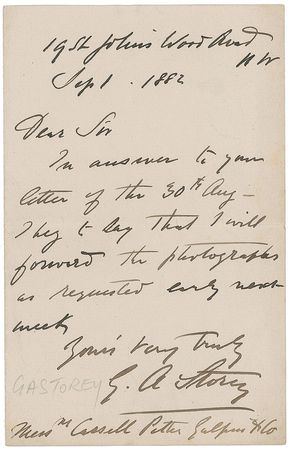 19 St John's Wood Road
N W
Sept. 1882
Dear Sir
In answer to your
letter of the 30th Aug -
I beg to say that I will
forward the photographs
as requested early next
week
Yours very truly
GASTOREY G. A Storey
Messrs Cassell Petter Galpin & Co